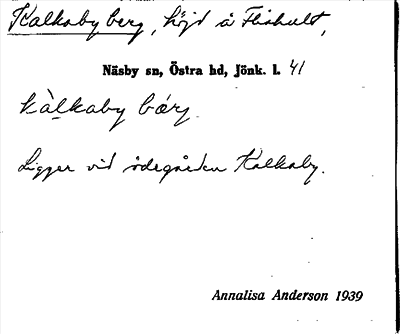 Kalkaby berg, höjd å Fliskult,
Näsby sn, Östra hd, Jönk. l. 41
kàlkaby bærj
Ligger vid ödegården Kalkaby.
Annalisa Anderson 1939